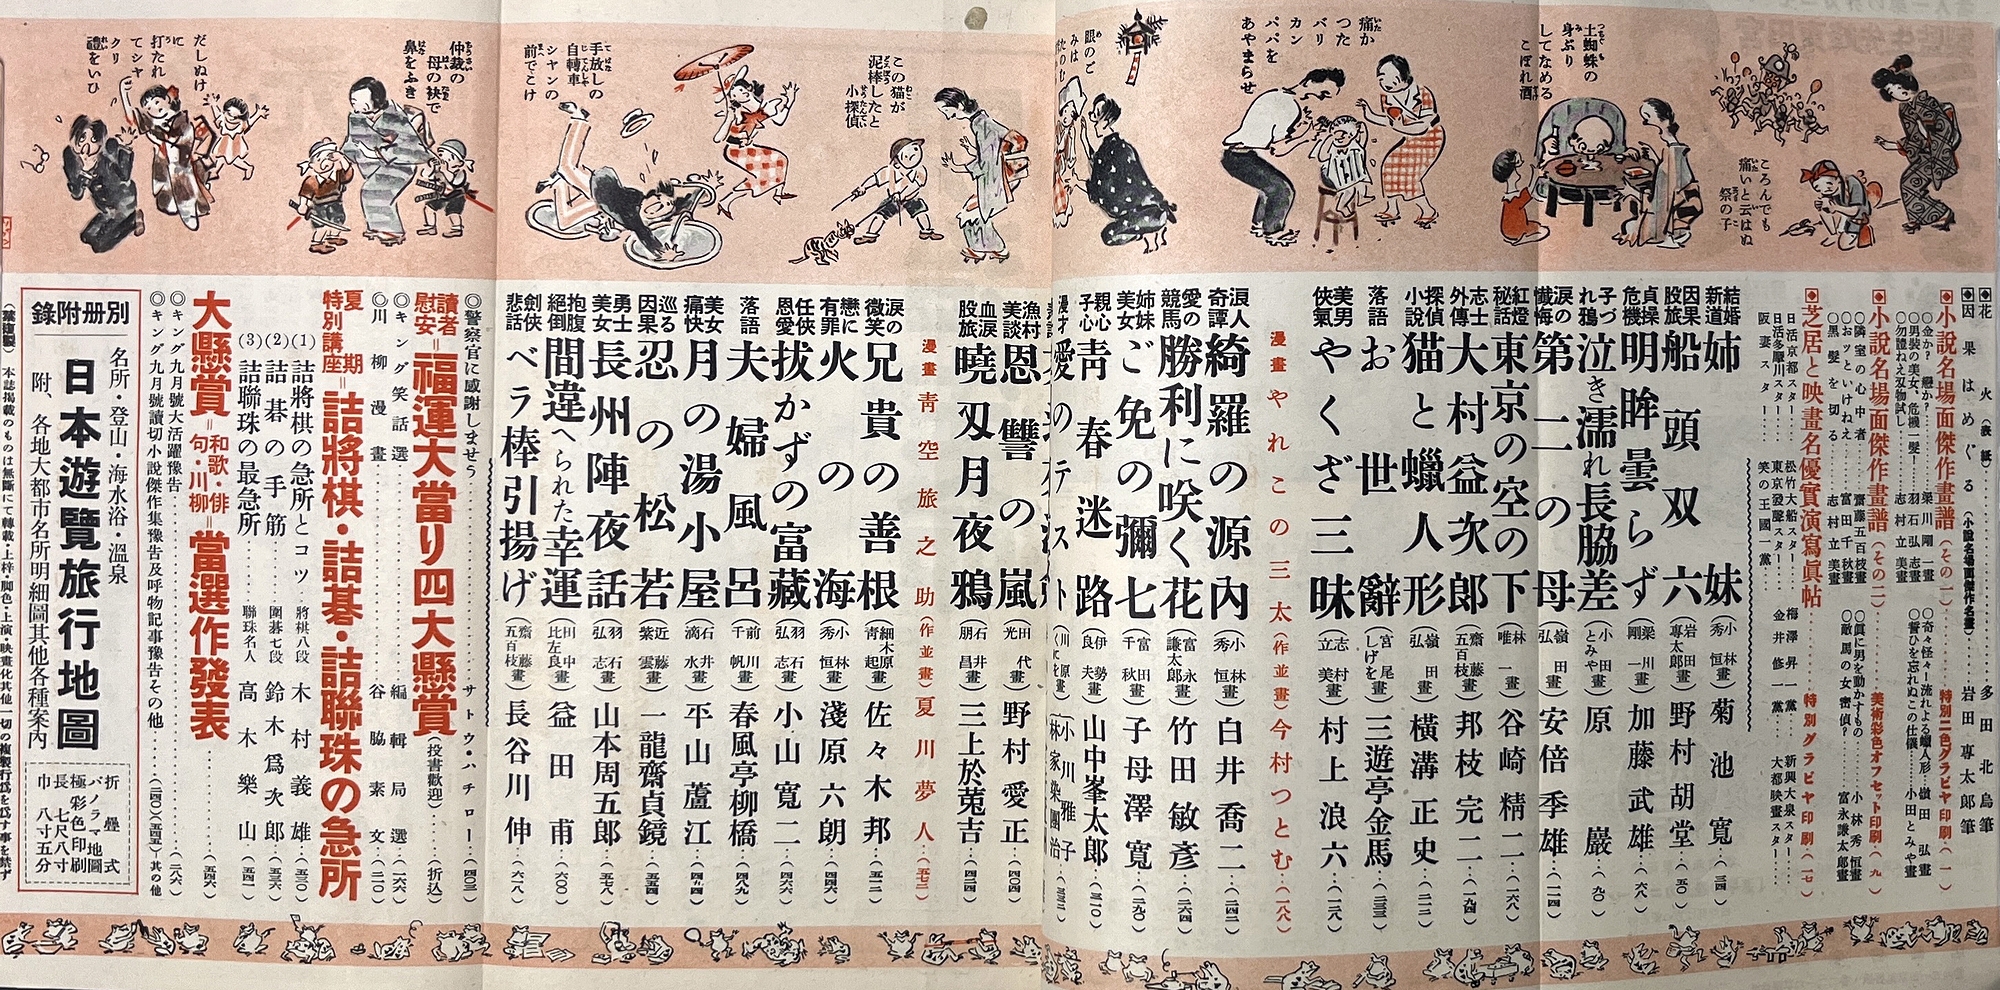 ころんでも
痛いと云はぬ
祭の子
土蜘蛛の
身ぶり
してなめる
こぼれ酒
痛か
つた
バリ
カン
パパを
あやまらせ
眼のご
みは
この猫が
泥棒したと
小探偵
手放しの
自轉車
シヤンの
前でこけ
仲裁の
母の袂で
鼻をふき
だしぬけ
に
打たれ
テシヤ
クリ
禮をいひ
花火(表紙)……多田北烏筆
因果はめぐる(小說名場面傑作名畫)……岩田專太郎筆
小說名場面傑作畫譜(その一)……特別二色グラビヤ印刷(一)
○金か?戀か?……梁川剛一畫
○男裝の美女、危機一髮!……羽石弘志畫
○勿體ねえ双物試し……志村立美畫
○奇々怪々!流れよる蠟人形・嶺田弘畫
○誓ひを忘れぬこの仕儀……小田とみや畫
小說名場面傑作畫譜(その二)……美術彩色オフセット印刷(九)
○隣室の心中者……齋藤五百枝畫
○おッといけねえ……富田千秋畫
○黑髮を切る……志村立美畫
○眞に男を動かすもの……小林秀恒畫
○敵馬の女密偵?……富永謙太郎畫
芝居と映畫名優實演寫眞帖……特別グラビヤ印刷(一七)
日活京都スター……松竹大船スター……梅澤昇一黨……新興大泉スター
日活多摩川スター……東京發聲スター……金井修一黨……大都映畫スター
阪妻スター……笑の王國一黨
結婚新道 姉妹(小林秀恒畫)菊池寬(三四)
因果股旅 船頭双六(岩田專太郎畫)野村胡堂(五〇)
貞操危機 明眸曇らず(梁川剛一畫)加藤武雄(六八)
子づれ鴉 泣き濡れ長脇差(小田とみや畫)原巖(九〇)
淚の懺悔 第二の母(嶺田弘畫)安倍季雄(一一四)
紅燈秘話 東京の空の下(林唯一畫)谷崎精二(一六八)
志士外傳 大村益次郎(齋藤五百枝畫)邦枝完二(一九四)
探偵小說 猫と蠟人形(嶺田弘畫)橫溝正史(二一二)
落語 お世辭(宮尾しげを畫)三遊亭金馬(二三三)
美男俠氣 やくざ三昧(志村立美畫)村上浪六(一二八)
漫畫 やれこの三太(作並畫)今村つとむ(一八八)
浪人奇譚 綺羅の源內(小林秀恒畫)白井喬二(二四二)
愛の競馬 勝利に咲く花(富永謙太郎畫)竹田敏彥(二六四)
姉妹美女 ご免の彌七(富田千秋畫)子母澤寬(二九〇)
親心子心 靑春迷路(伊勢良夫畫)山中峯太郎(三一〇)
漫才 愛のテスト 小川雅子 林家染團治(三三二)
漁村美談 恩讐の嵐(田代光畫)野村愛正(四〇四)
血淚股旅 曉双月夜鴉(石井朋昌畫)三上於菟吉(四二四)
漫畫 靑空旅之助(作並畫)夏川夢人(五七二)
淚の微笑 兄貴の善根(細木原靑起畫)佐々木邦(五一二)
戀に有罪 火の海(小林秀恒畫)淺原六朗(四四六)
任俠恩愛 拔かずの富藏(羽石弘志畫)小山寬二(四六六)
落語 夫婦風呂(前川千帆畫)春風亭柳橋(四八九)
美女痛快 月の湯小屋(石井滴水畫)平山蘆江(四九四)
巡る因果 忍の松若(近藤紫雲畫)一龍齋貞鏡(五五四)
勇士美女 長州陣夜話(羽石弘志畫)山本周五郎(五七八)
抱腹絕倒 間違へられた幸運(田中比左良畫)益田甫(六〇〇)
劍俠悲話 ベラ棒引揚げ(齋藤五百枝畫)長谷川伸(六二八)
◎警察官に感謝しませう……サトウ・ハチロー(四〇三)
讀者慰安=福運大當り四大懸賞(投書歡迎)……(折込)
◎キング笑話選……編輯局選(一六六)
◎川柳漫畫……谷脇素文(二一〇)
夏期特別講座=詰將棋・詰碁・詰聯珠の急所
(1)詰將棋の急所とコツ 將棋八段 木村義雄(五三〇)
(2)詰碁の手筋 圍碁七段 鈴木爲次郎(五三六)
(3)詰聯珠の最急所 聯珠名人 高木樂山(五四一)
大懸賞=和歌・俳句・川柳=當選作發表……(五四六)
◎キング九月號大活躍豫告……(二八六)
◎キング九月號讀切小說傑作集豫告及呼物記事豫告その他……その他
別册附錄
名所・登山・海水浴・溫泉
日本遊覽旅行地圖
附、各地大都市名所明細圖其他各種案內
折疊式
パノラマ地圖
極彩色印刷
長七尺八寸
巾八寸五分
(禁複製)本誌揭載のものは無斷にて轉載・上梓・脚色・上演・映畫化其他一切の複製行爲を爲す事を禁ず